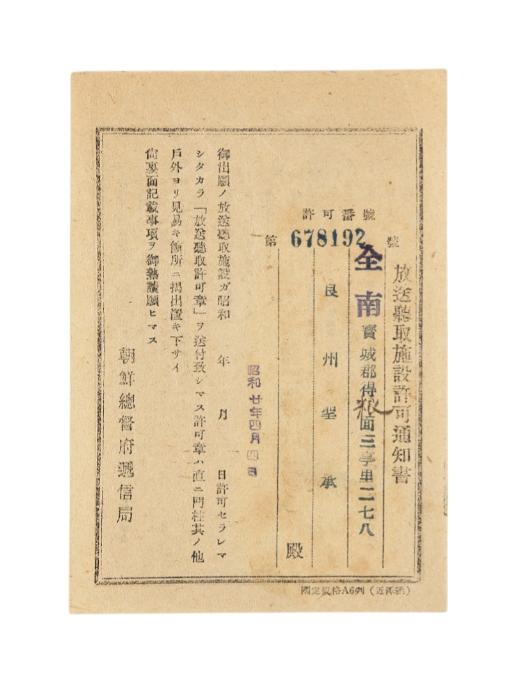 放送聽取施設許可通知書
許可番號
第 678192 號
全南寶城郡得粮面三亭里二七八
良州聖承 殿
御出願ノ放送聽取施設ガ昭和 年 月 日許可セラレマ
シタカラ「放送聽取許可章」ヲ送付致シマス許可章ハ直ニ門柱其ノ他
戶外ヨリ見易キ個所ニ揭出置キ下サイ
尙裏面記載事項ヲ御熟讀願ヒマス
昭和廿年四月四日
朝鮮總督府遞信局
國定規格A6列